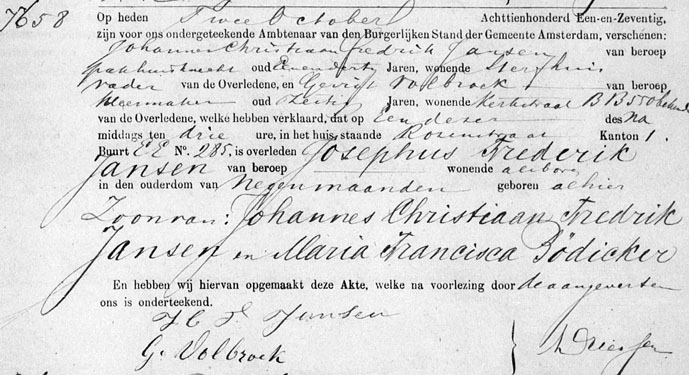 7658
Op heden Twee October Achttienhonderd Een-en-Zeventig,
zijn voor ons ondergeteekende Ambtenaar van den Burgerlijken Stand der Gemeente Amsterdam, verschenen:
Johannes Christiaan Fredrik Jansen van beroep
pakhuisknecht oud Eenendertig Jaren, wonende Sterfhuis,
vader van de Overledene, en Gerrit Volbroek van beroep
kleermaker oud Zestig Jaren, wonende Kerkstraat B B 550 bekende
van de Overledene, welke hebben verklaard, dat op Een dezer des Na
middags ten drie ure, in het huis, staande Rozenstraat Kanton 1.
Buurt EE No. 285, is overleden Josephus Frederik
Jansen van beroep wonende aldaar
in den ouderdom van Negen maanden geboren alhier
Zoon van: Johannes Christiaan Fredrik
Jansen en Maria Francisca Bödicker
En hebben wij hiervan opgemaakt deze Akte, welke na voorlezing door de aangevers en
ons is onderteekend.
J C F Jansen
G. Volbroek